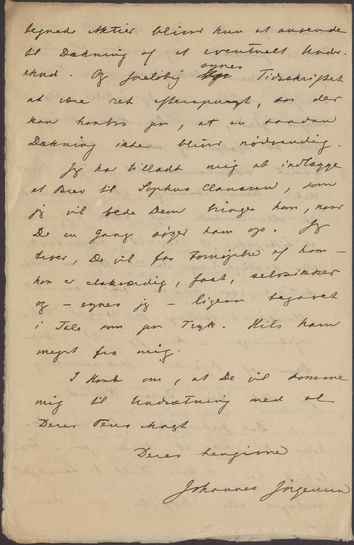 tegnede Aktier bliver kun at anvende
til Dækning af et eventuelt Under-
skud. Og foreløbig synes Tidsskriftet
at være ret efterspurgt, saa der
kan haabes paa, at en saadan
Dækning ikke bliver nødvendig.
Jeg har tilladt mig at indlægge
et Brev til Sophus Claussen, som
jeg vil bede Dem bringe ham, naar
De en Gang søger ham op. Jeg
tror, De vil faa Fornøjelse af ham –
han er elskværdig, fast, selvsikker
og – synes jeg – ligesaa begavet
i Tale som paa Tryk. Hils ham
meget fra mig.
I Haab om, at De vil komme
mig til Undsætning med al
Deres Pens Magt
Deres hengivne
Johannes Jørgensen